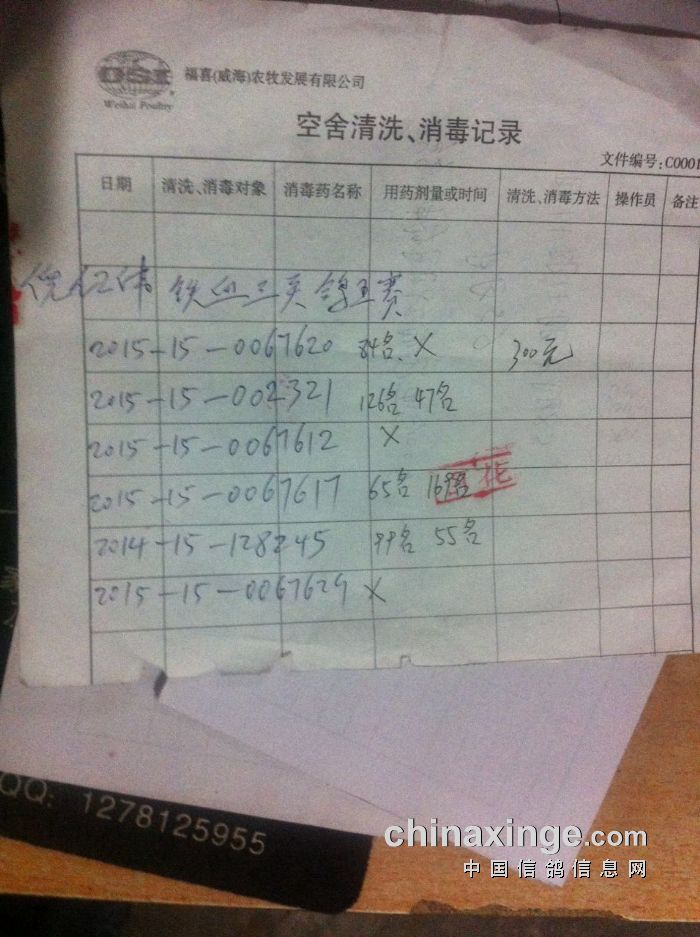 OSI
Weihai Poultry
福喜(威海)农牧发展有限公司
空舍清洗、消毒记录
文件编号:C0001
日期 清洗、消毒对象 消毒药名称 用药剂量或时间 清洗、消毒方法 操作员 备注
倪仁伟 铁血三关鸽王赛
2015-15-0067620 84名、X 300元
2015-15-002321 126名 47名
2015-15-0067612 X
2015-15-0067617 65名 169名
2014-15-128245 99名 55名
2015-15-0067629 X
QQ: 1278125955
chinaxinge.com
中国信鸽信息网